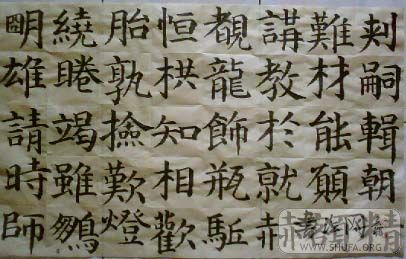 明繞胎恒覩講難刾
雄睠孰栱龍教材嗣
請竭撿知飾於能輯
時雖歎相瓶就願朝
師鶵燈歡駈赤
WWW.SHUFA.ORG